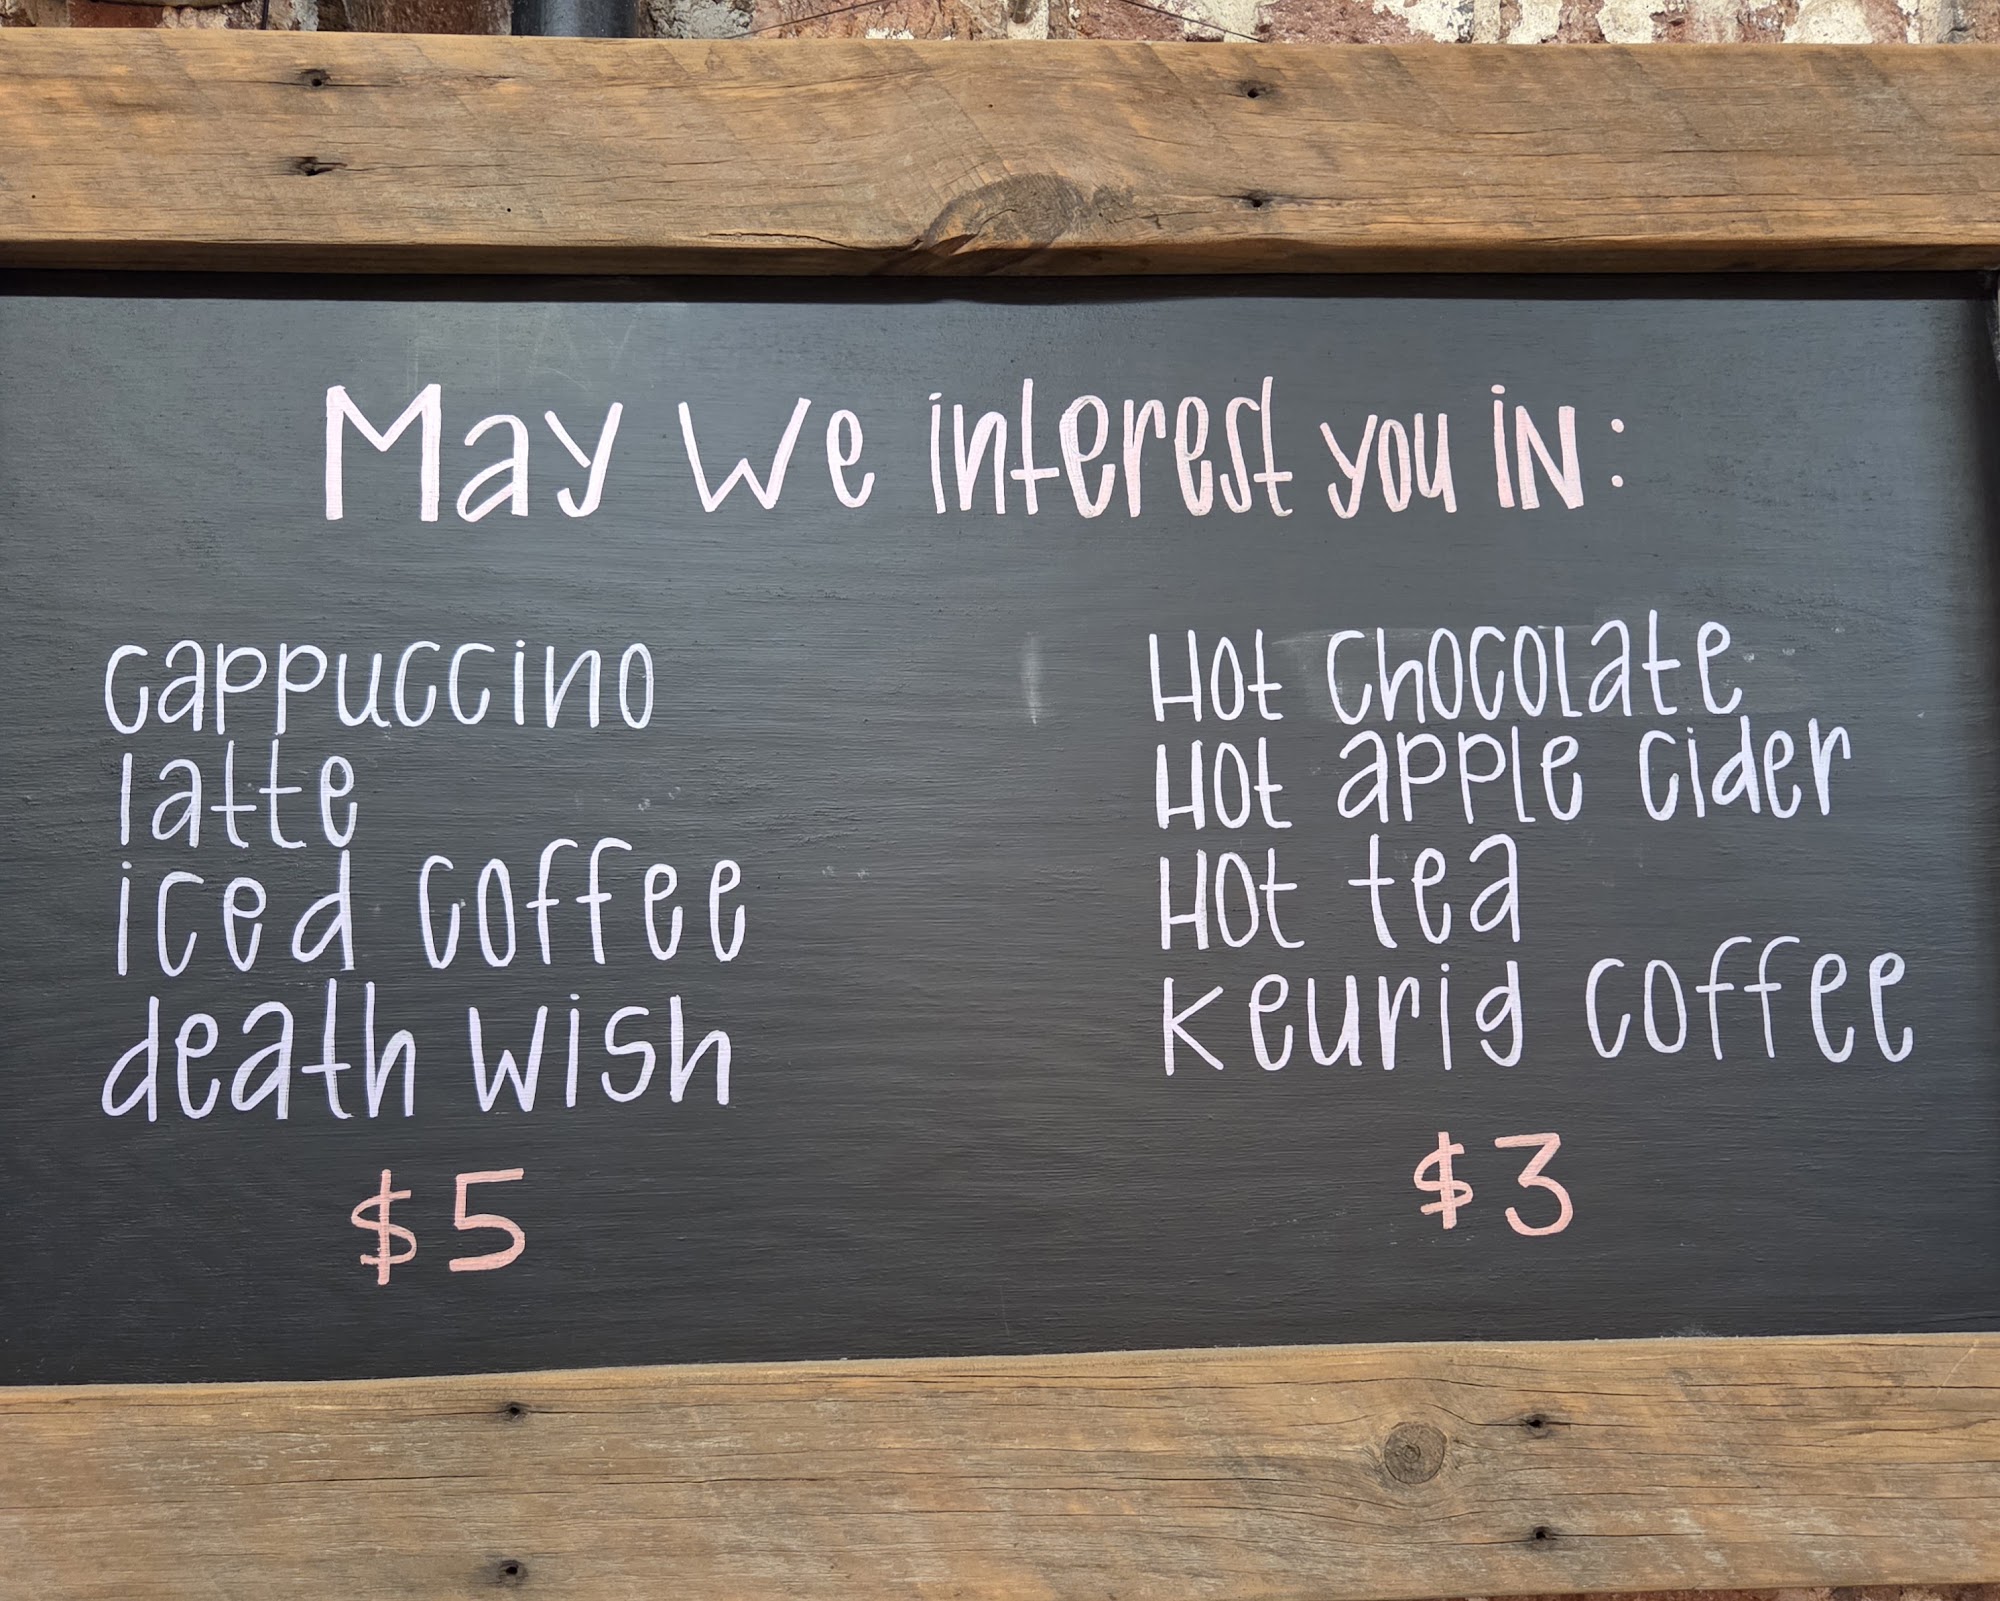 May We interest you iN:
cappuccino
latte
iced coffee
death wish
$5
Hot chocolate
Hot apple cider
Hot tea
keurig coffee
$3